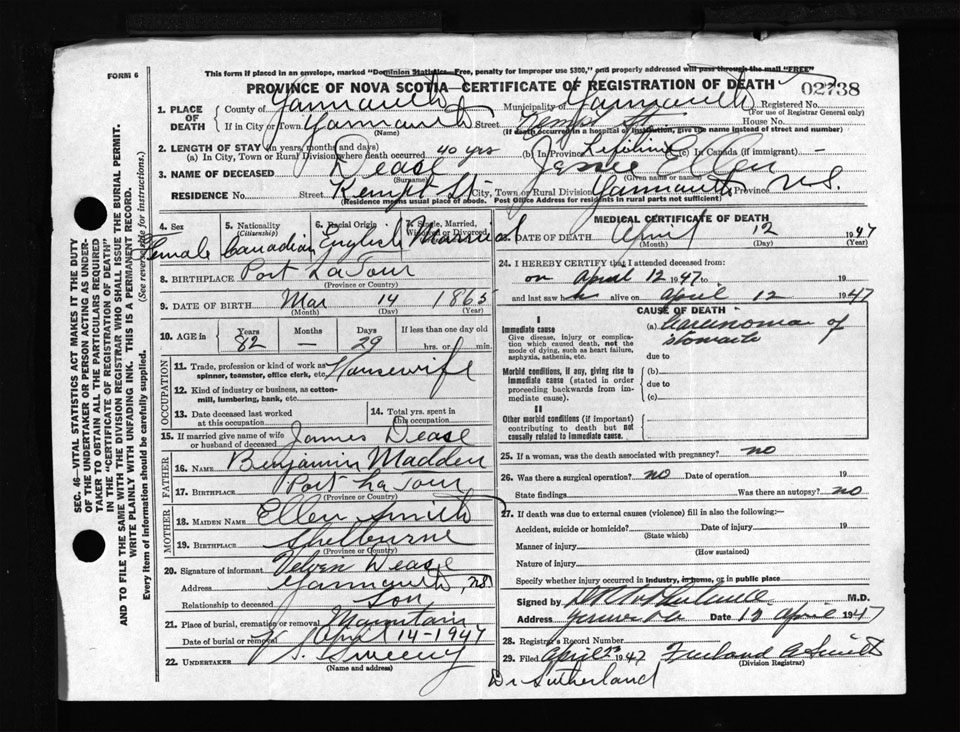 FORM 6
This form if placed in an envelope, marked "Dominion Statistics—Free, penalty for improper use $300," and properly addressed will pass through the mail "FREE"
PROVINCE OF NOVA SCOTIA—CERTIFICATE OF REGISTRATION OF DEATH
02738
1. PLACE OF DEATH
County of Yarmouth Municipality Yarmouth Registered No.
(For use of Registrar General only)
If in City or Town Yarmouth Street Kempt St. House No.
(Name) (If death occurred in a hospital or institution, give the name instead of street and number)
2. LENGTH OF STAY (in years, months and days)
(a) In City, Town or Rural Division where death occurred 40 yrs (b) In Province Lifetime (c) In Canada (if immigrant) —
3. NAME OF DECEASED Dease Jessie Ellen
(Surname) (Given name or names)
RESIDENCE No. Street Kempt St City, Town or Rural Division Yarmouth Province N.S.
(Residence means usual place of abode. Post Office Address for residents in rural parts not sufficient)
4. Sex Female
5. Nationality (Citizenship) Canadian
6. Racial Origin English
7. Single, Married, Widowed or Divorced Married
8. BIRTHPLACE Port La Tour
(Province or Country)
9. DATE OF BIRTH Mar 14 1865
(Month) (Day) (Year)
10. AGE in Years 82 Months — Days 29 If less than one day old hrs. or min.
OCCUPATION
11. Trade, profession or kind of work as spinner, teamster, office clerk, etc. Housewife
12. Kind of industry or business, as cotton-mill, lumbering, bank, etc.
13. Date deceased last worked at this occupation
14. Total yrs. spent in this occupation
15. If married give name of wife or husband of deceased James Dease
FATHER
16. NAME Benjamin Madden
17. BIRTHPLACE Port La Tour
(Province or Country)
MOTHER
18. MAIDEN NAME Ellen Smith
19. BIRTHPLACE Shelburne
(Province or Country)
20. Signature of informant Velvin Dease
Address Yarmouth, NS
Relationship to deceased Son
21. Place of burial, cremation or removal Mountain
Date of burial or removal April 14-1947
22. UNDERTAKER Sweeny
(Name and address)
MEDICAL CERTIFICATE OF DEATH
DATE OF DEATH April 12 1947
(Month) (Day) (Year)
24. I HEREBY CERTIFY that I attended deceased from:
on April 12 1947 to 19
and last saw h alive on April 12 1947
CAUSE OF DEATH
I
Immediate cause
Give disease, injury or complication which caused death, not the mode of dying, such as heart failure, asphyxia, asthenia, etc.
(a) Carcinoma of
due to
Morbid conditions, if any, giving rise to immediate cause (stated in order proceeding backwards from immediate cause).
(b)
due to
(c)
II
Other morbid conditions (if important) contributing to death but not causally related to immediate cause.
25. If a woman, was the death associated with pregnancy? no
26. Was there a surgical operation? no Date of operation 19
State findings Was there an autopsy? no
27. If death was due to external causes (violence) fill in also the following:—
Accident, suicide or homicide? Date of injury 19
(State which)
Manner of injury
(How sustained)
Nature of injury
Specify whether injury occurred in industry, in home, or in public place
Signed by M.D.
Address Date 12 April 1947
28. Registrar's Record Number
29. Filed April 23 1947
(Division Registrar)
Dr Sutherland
SEC. 46—VITAL STATISTICS ACT MAKES IT THE DUTY
OF THE UNDERTAKER OR PERSON ACTING AS UNDER-
TAKER TO OBTAIN ALL THE PARTICULARS REQUIRED
IN THE "CERTIFICATE OF REGISTRATION OF DEATH"
AND TO FILE THE SAME WITH THE DIVISION REGISTRAR WHO SHALL ISSUE THE BURIAL PERMIT.
WRITE PLAINLY WITH UNFADING INK. THIS IS A PERMANENT RECORD.
Every item of information should be carefully supplied. (See reverse side for instructions.)